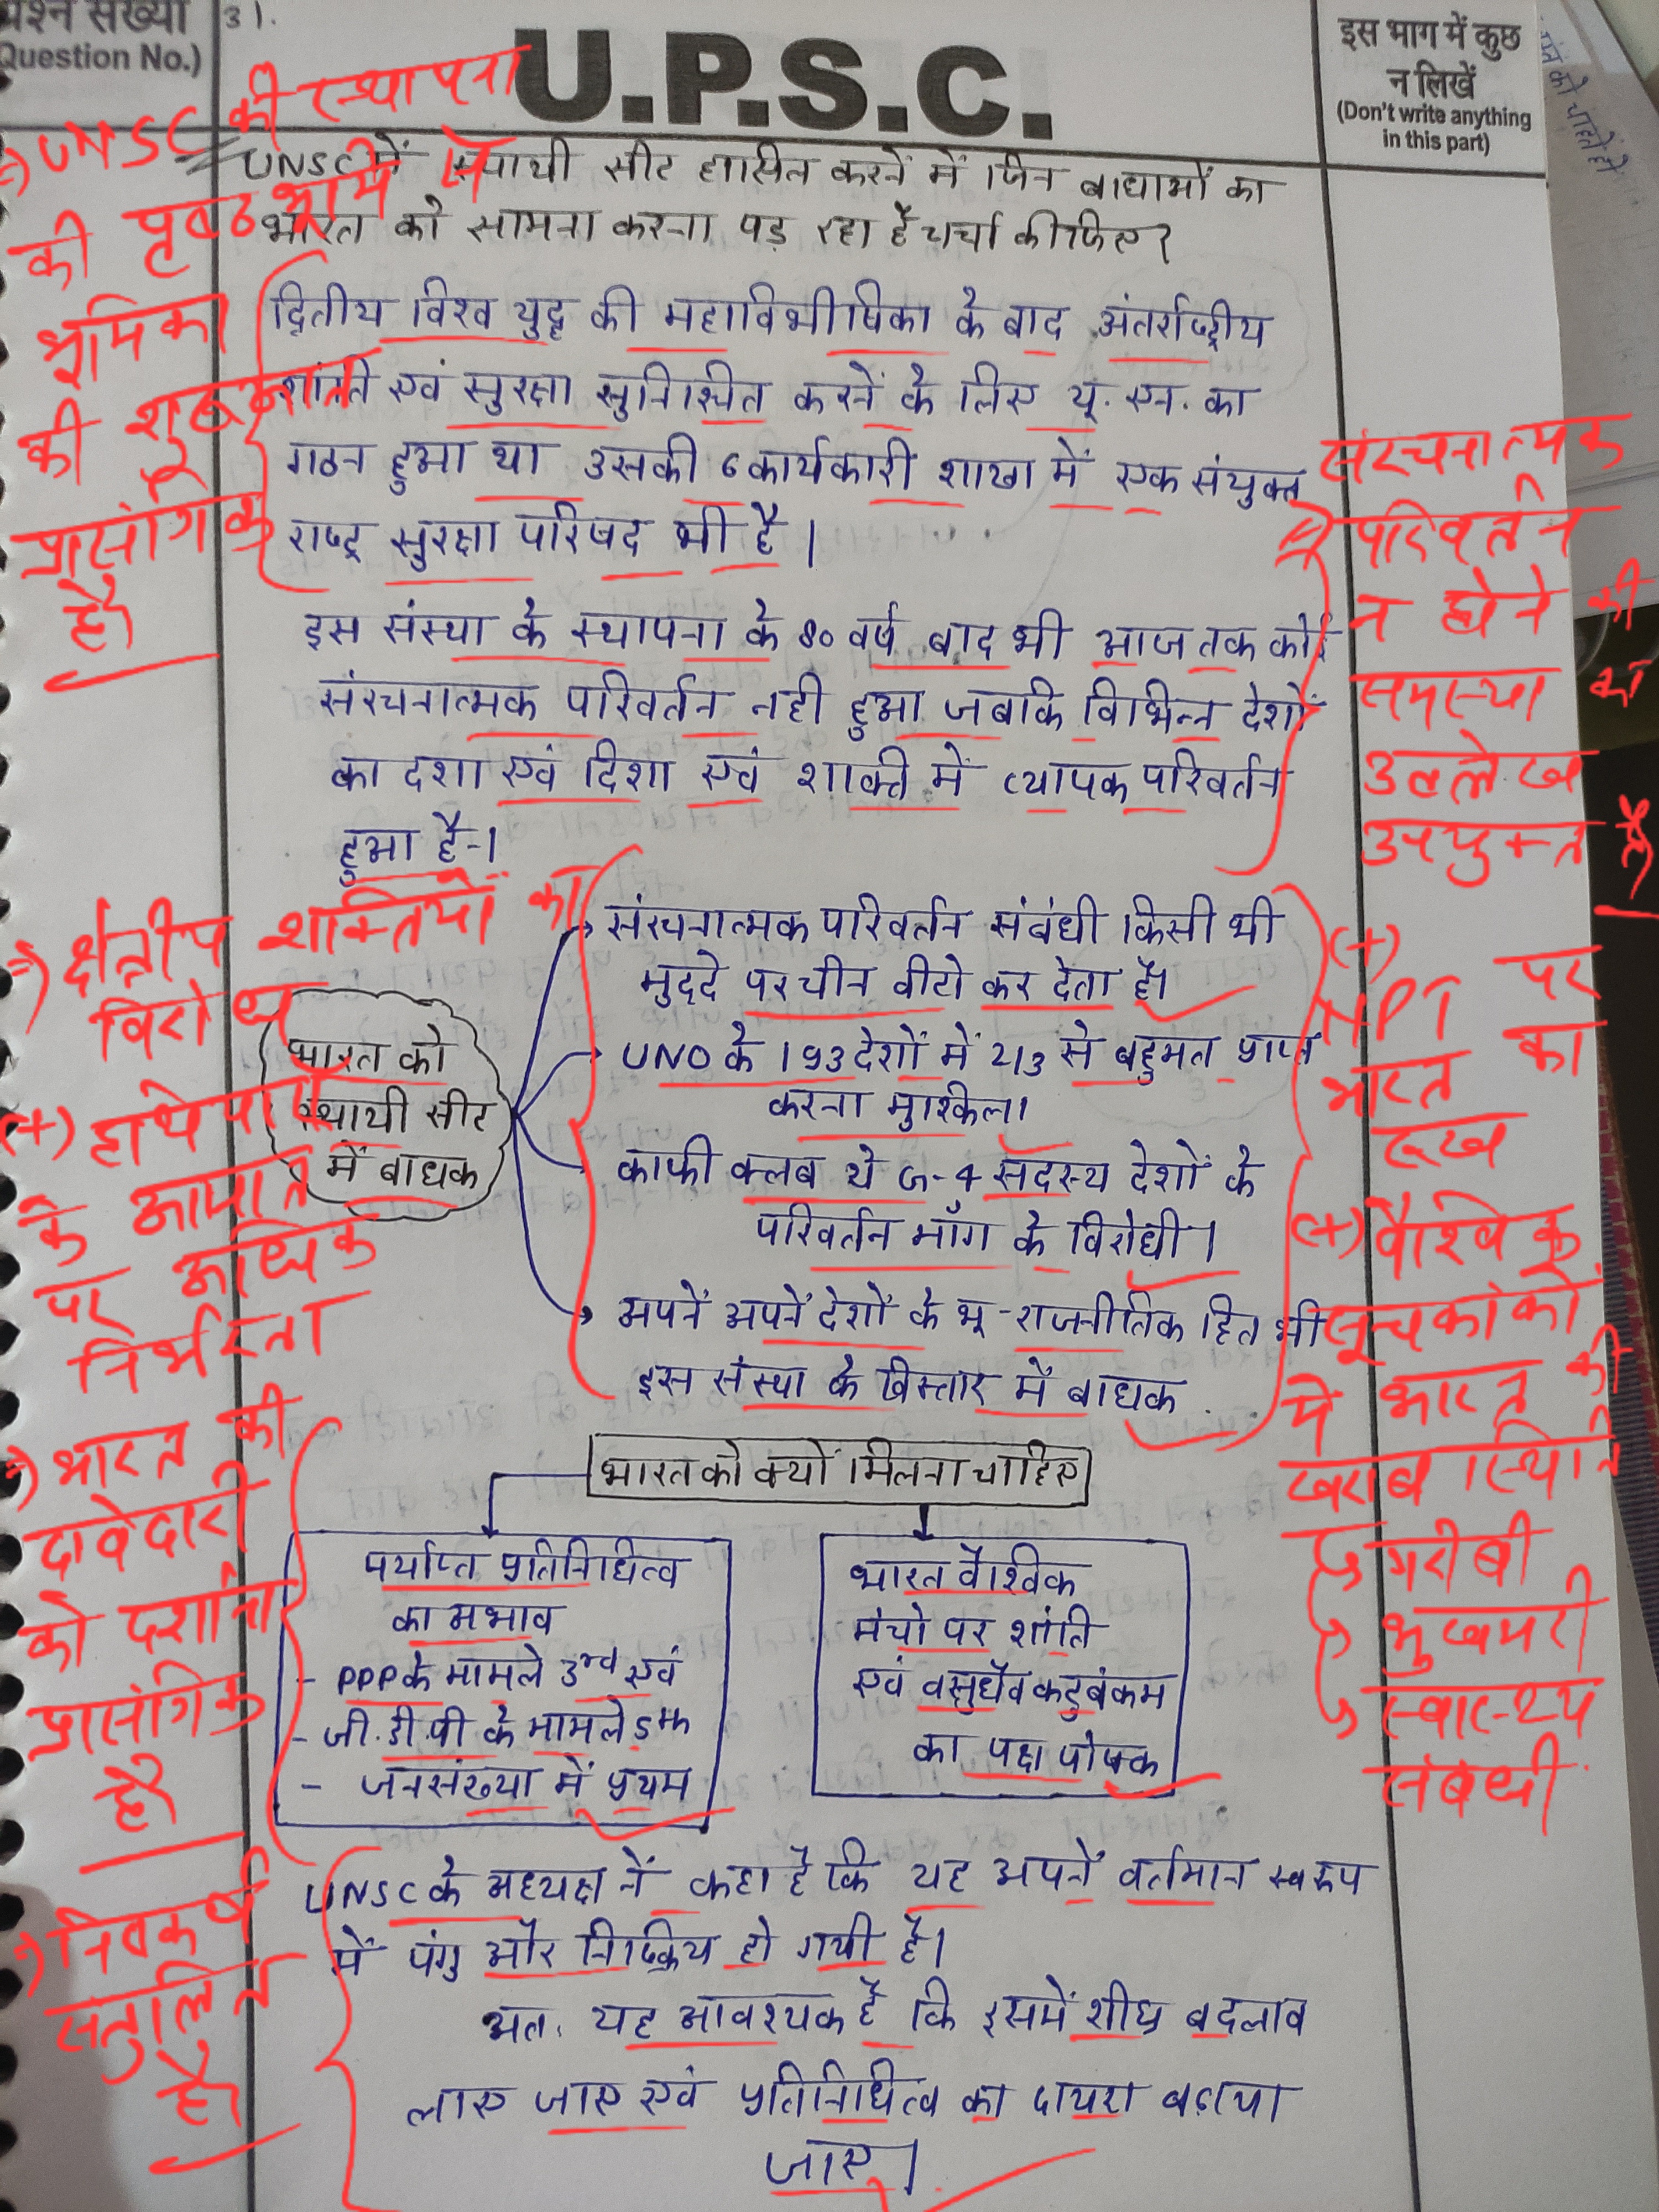 प्रश्न संख्या
(Question No.)
3).
U.P.S.C.
इस भाग में कुछ
न लिखें
(Don't write anything
in this part)
UNSC में स्थायी सीट हासिल करनें में जिन बाधाओं का
भारत को सामना करना पड़ रहा है चर्चा कीजिए?
द्वितीय विश्व युद्ध की महाविभीषिका के बाद अंतर्राष्ट्रीय
शांति एवं सुरक्षा सुनिश्चित करनें के लिए यू.एन. का
गठन हुआ था उसकी 6 कार्यकारी शाखा में एक संयुक्त
राष्ट्र सुरक्षा परिषद भी है।
इस संस्था के स्थापना के 80 वर्ष बाद भी आज तक कोई
संरचनात्मक परिवर्तन नही हुआ जबकि विभिन्न देशों
का दशा एवं दिशा एवं शक्ति में व्यापक परिवर्तन
हुआ है।
भारत को
स्थायी सीट
में बाधक
संरचनात्मक परिवर्तन संबंधी किसी भी
मुददे पर चीन वीटो कर देता है।
UNO के 193 देशों में 2/3 से बहुमत प्राप्त
करना मुश्किल।
काफी क्लब ये G-4 सदस्य देशों के
परिवर्तन माँग के विरोधी।
अपनें अपनें देशों के भू-राजनीतिक हित भी
इस संस्था के विस्तार में बाधक
भारत को क्यों मिलना चाहिए
पर्याप्त प्रतिनिधित्व
का अभाव
- PPP के मामले 3rd एवं
- जी.डी.पी के मामले 5th
- जनसंख्या में प्रथम
भारत वैश्विक
मंचो पर शांति
एवं वसुधैव कुटुंबकम
का पक्ष पोषक
UNSC के अध्यक्ष नें कहा है कि यह अपनें वर्तमान स्वरूप
में पंगु और निष्क्रिय हो गयी है।
अतः यह आवश्यक है कि इसमें शीघ्र बदलाव
लाए जाए एवं प्रतिनिधित्व का दायरा बढ़ाया
जाए।
⇒ UNSC की स्थापना
की पृष्ठभूमि से
भूमिका
की शुरूआत
प्रासंगिक
है।
⇒ संरचनात्मक
परिवर्तन
न होने की
समस्या का
उल्लेख
उपयुक्त है।
⇒ क्षेत्रीय शक्तियों का
विरोध
(+) हथियारों
के आयात
पर अधिक
निर्भरता
(+)
NPT पर
भारत का
रूख
(+) वैश्विक
सूचकांकों
में भारत की
खराब स्थिति
↳ गरीबी
↳ भुखमरी
↳ स्वास्थ्य
संबंधी
⇒ भारत की
दावेदारी
को दर्शाना
प्रासंगिक
है।
⇒ निष्कर्ष
संतुलित
है।